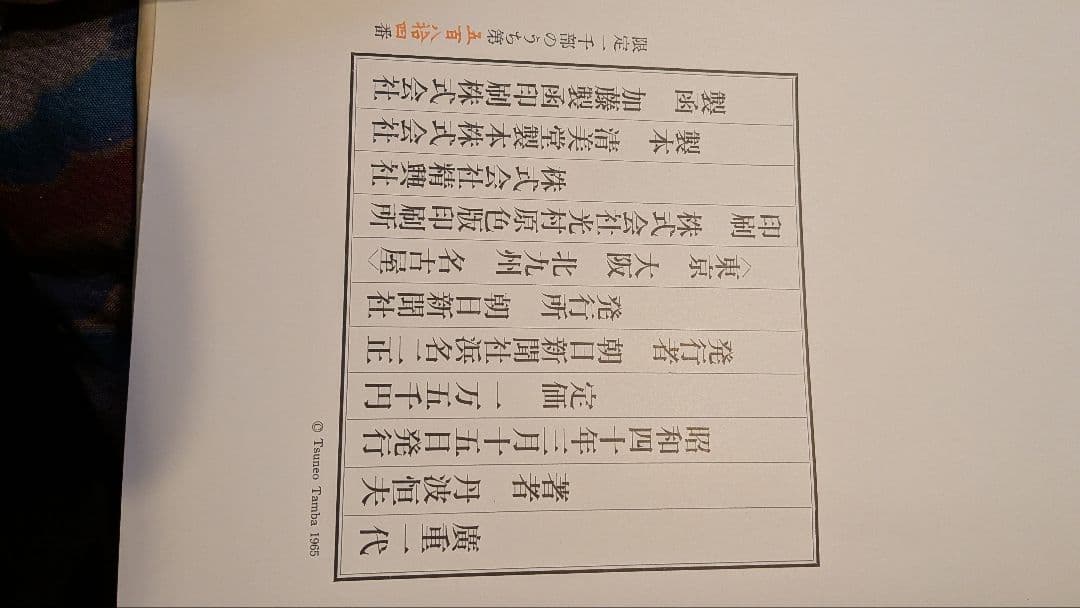 廣重一代
著者 丹波恒夫
昭和四十年三月十五日発行
定価 一万五千円
発行者 朝日新聞社 浜名二正
発行所 朝日新聞社
〈東京 大阪 北九州 名古屋〉
印刷 株式会社光村原色版印刷所
株式会社精興社
製本 清美堂製本株式会社
製函 加藤製函印刷株式会社
限定一千部のうち第五百八拾四番
© Tsuneo Tamba 1965